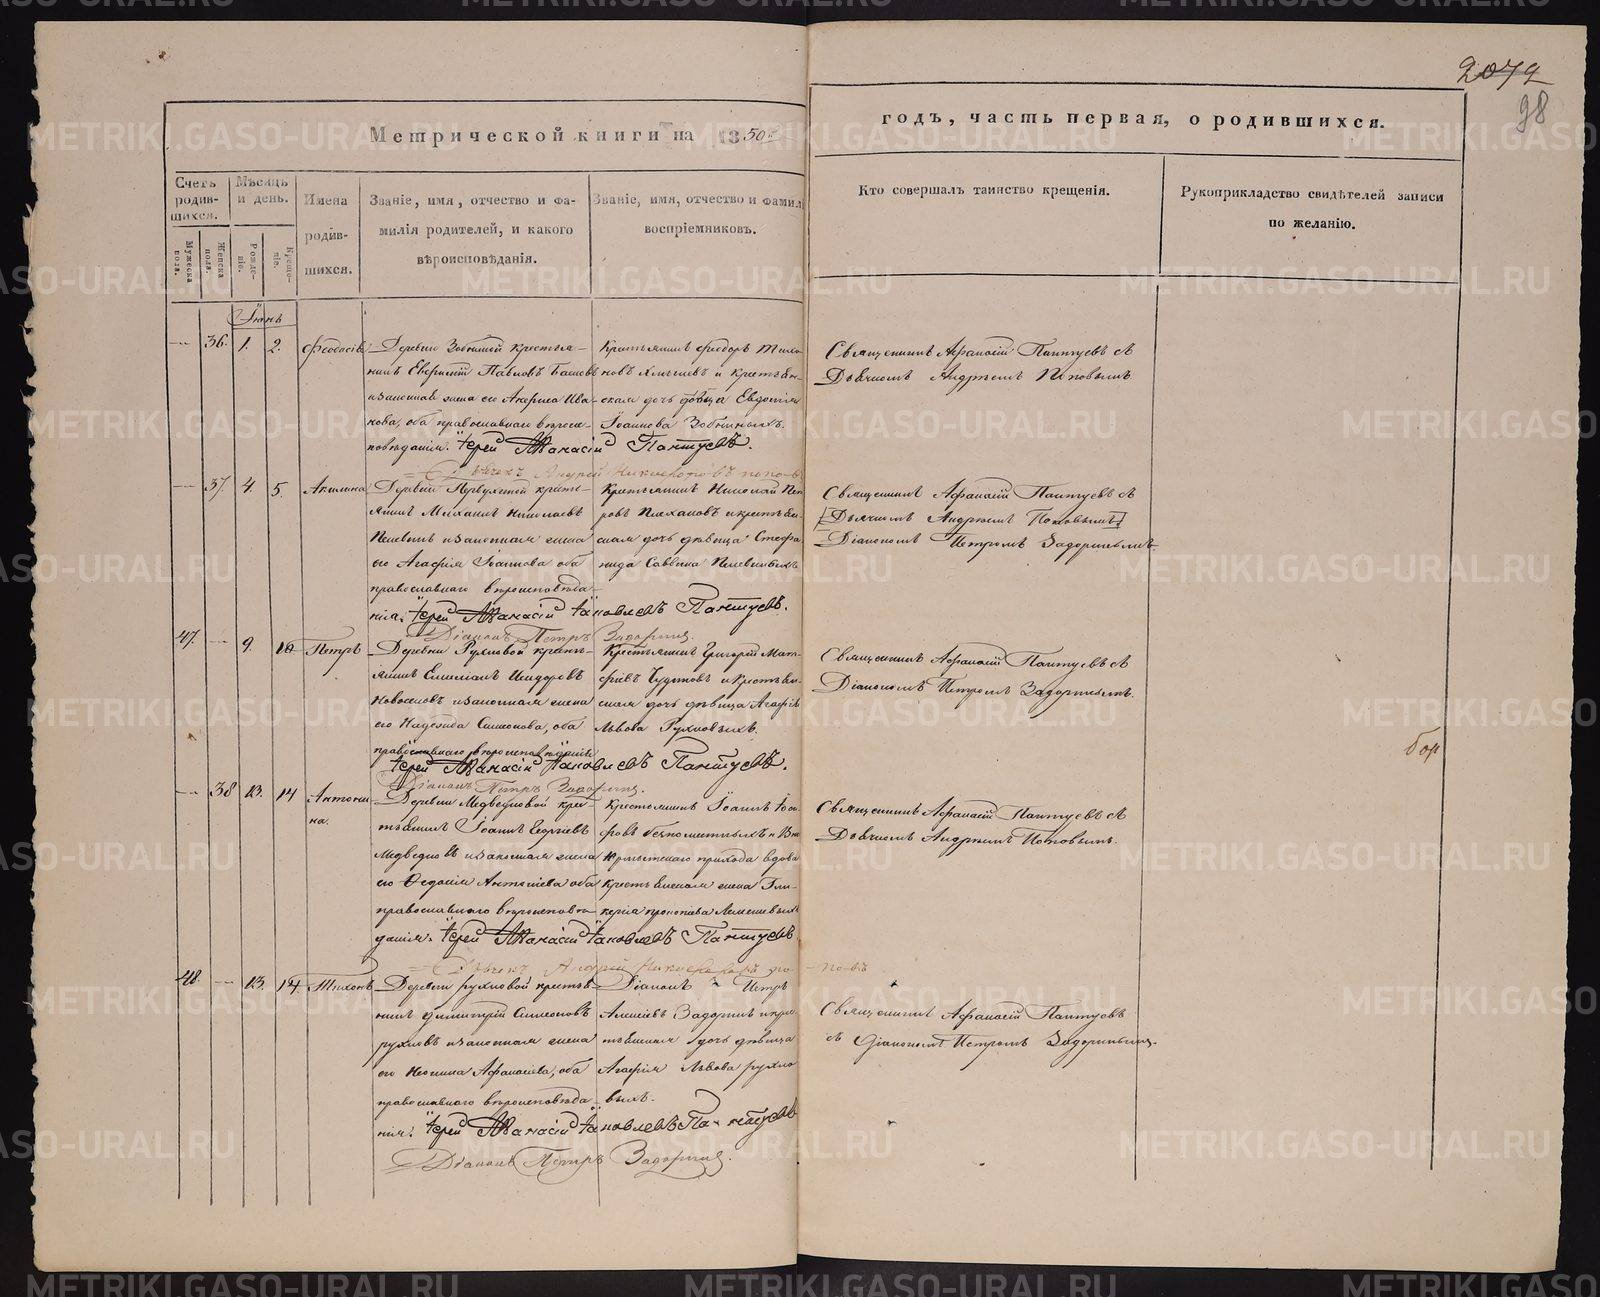 2072
98
Метрической книги на 1850й
годъ, часть первая, о родившихся.
Счетъ родив-шихся.
Мѣсяцъ и день.
Имена родив-шихся.
Званіе, имя, отчество и фа-
милія родителей, и какого
вѣроисповѣданія.
Званіе, имя, отчество и фамил
воспріемниковъ.
Кто совершалъ таинство крещенія.
Рукоприкладство свидѣтелей записи
по желанію.
Мужеска пола.
Женска пола.
Рожде-ніе.
Креще-ніе.
Іюнь
— 36. 1. 2.
Деревни Зобниной крестья-
нинъ Павловъ
и законная жена его Ива-
нова, оба православнаго вѣроис-
повѣданія. Іерей Аѳанасій Пантуевъ.
Крестьянинъ Ѳеодоръ
и крестьян-
ская дочь дѣвица Евдокія
Іоаннова Зобниныхъ.
Священникъ Афанасій Пантуевъ съ
Дьячкомъ Андреемъ Поповымъ
Дьячекъ Андрей Никифоровъ поповъ
— 37. 4. 5. Акилина
Деревни кресть-
янинъ Михаилъ Николаевъ
Пелевинъ и законная жена
его Агафія Іоаннова оба
православнаго вѣроисповѣда-
нія. Іерей Аѳанасій Іаковлевъ Пантуевъ.
Крестьянинъ Николай Пет
ровъ Плехановъ и крестьян-
ская дочь дѣвица Стефа
нида Саввина Пелевиныхъ
Священникъ Афанасій Пантуевъ съ
[Дьячкомъ Андреемъ Поповымъ]
Діакономъ Петромъ Задоринымъ
Діаконъ Петръ Задоринъ.
47. — 9. 10 Петръ
Деревни Рухловой кресть-
янинъ Емелианъ Исидоровъ
Новоселовъ и законная жена
его Надежда Симеонова, оба
православнаго вѣроисповѣданія
Іерей Аѳанасій Іаковлевъ Пантуевъ.
Крестьянинъ Григорій Мат-
фіевъ и крестьян-
ская дочь дѣвица Агафія
Львова Рухловыхъ.
Священникъ Афанасій Пантуевъ съ
Діакономъ Петромъ Задоринымъ.
Діаконъ Петръ Задоринъ.
— 38 13. 14 Антони
на.
Деревни Медведковой кре-
стьянинъ Іоаннъ Георгіевъ
Медведковъ и законная жена
его Ѳедосія оба
православнаго вѣроисповѣ-
данія. Іерей Аѳанасій Іаковлевъ Пантуевъ
Крестьянинъ Іоаннъ Іоси
фовъ
прихода вдова
крестьянская жена Гли-
керія
Священникъ Афанасій Пантуевъ съ
Дьячкомъ Андреемъ Поповымъ.
Дьячекъ Андрей Никифоровъ поповъ
48. — 13. 14. Тихонъ
Деревни рухловой крестья-
нинъ Димитрій Симеоновъ
рухловъ и законная жена
его Неонила Афанасіева, оба
православнаго вѣроисповѣда-
нія. Іерей Аѳанасій Іаковлевъ Пантуевъ
Діаконъ Петръ
Алексіевъ Задоринъ и кре-
стьянская дочь дѣвица
Агафія Львова рухло
выхъ.
Священникъ Афанасій Пантуевъ
съ Діакономъ Петромъ Задоринымъ.
Діаконъ Петръ Задоринъ.
METRIKI.GASO-URAL.RU